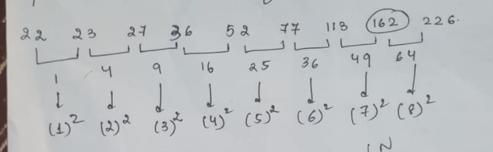 22 23 27 36 52 77 113 162 226.
1 4 9 16 25 36 49 64
(1)² (2)² (3)² (4)² (5)² (6)² (7)² (8)²